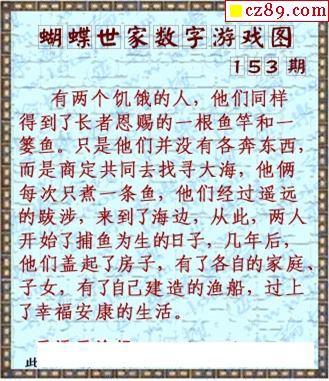 cz89.com
蝴蝶世家数字游戏图
153 期
有两个饥饿的人，他们同样
得到了长者恩赐的一根鱼竿和一
篓鱼。只是他们并没有各奔东西，
而是商定共同去找寻大海，他俩
每次只煮一条鱼，他们经过遥远
的跋涉，来到了海边，从此，两人
开始了捕鱼为生的日子，几年后，
他们盖起了房子，有了各自的家庭、
子女，有了自己建造的渔船，过上
了幸福安康的生活。
此